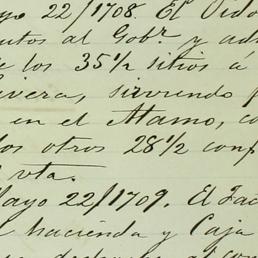 yo 22/1708. El Vido
utos al Gobr. y ad
e los 35 1/2 sitios á
ivera, sirviendo p
en el Alamo, co
los otros 28 1/2 conf
vta.
Mayo 22/1709. El Fac
hacienda y Caja